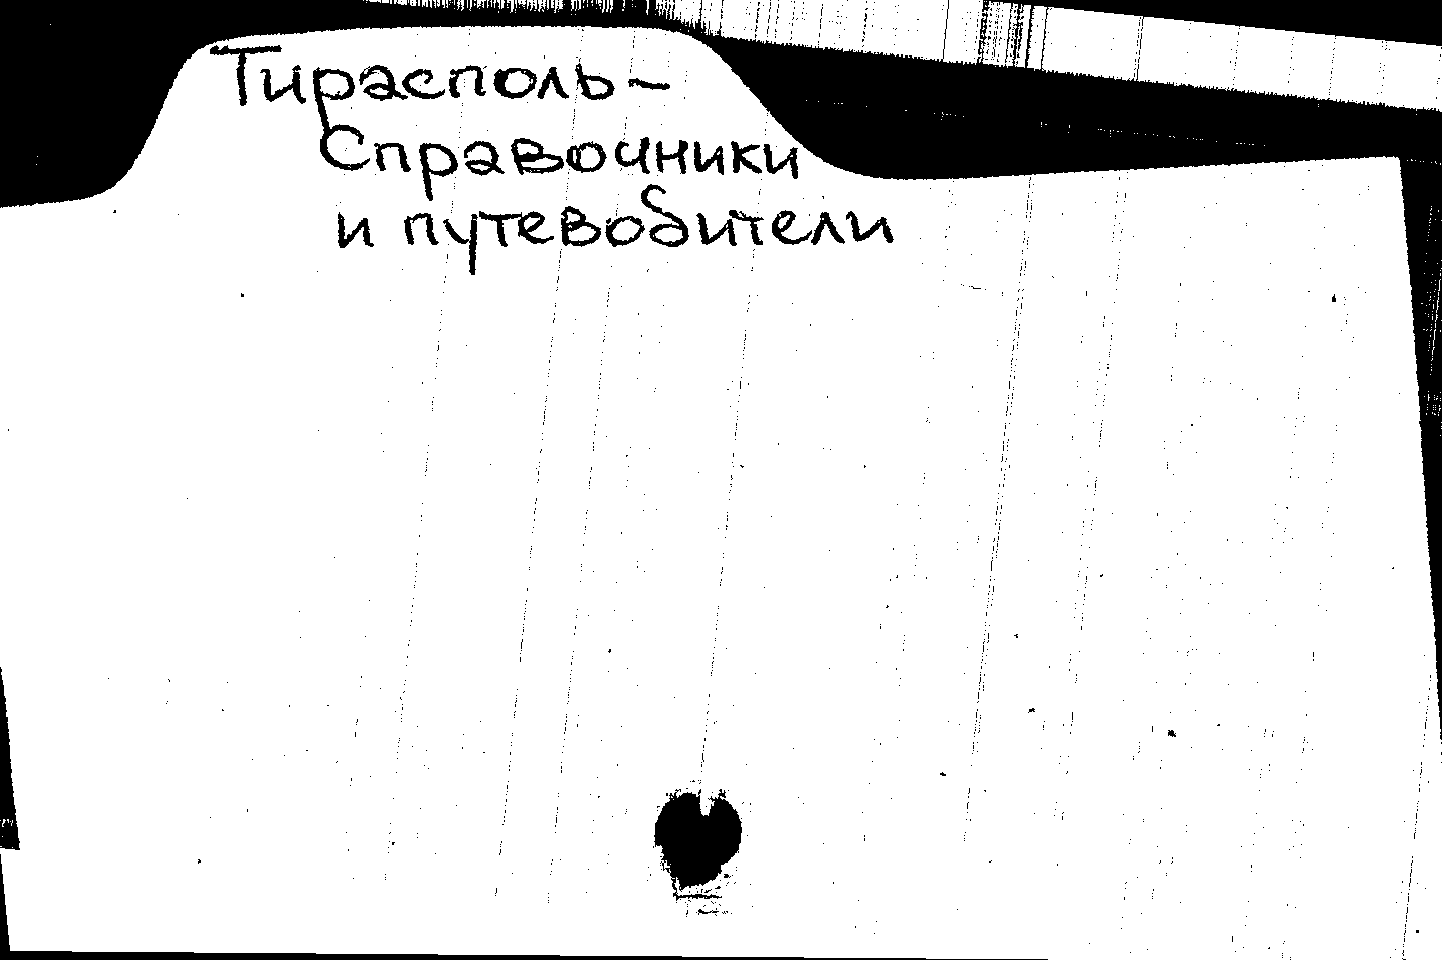 Тирасполь –
Справочники
и путеводители